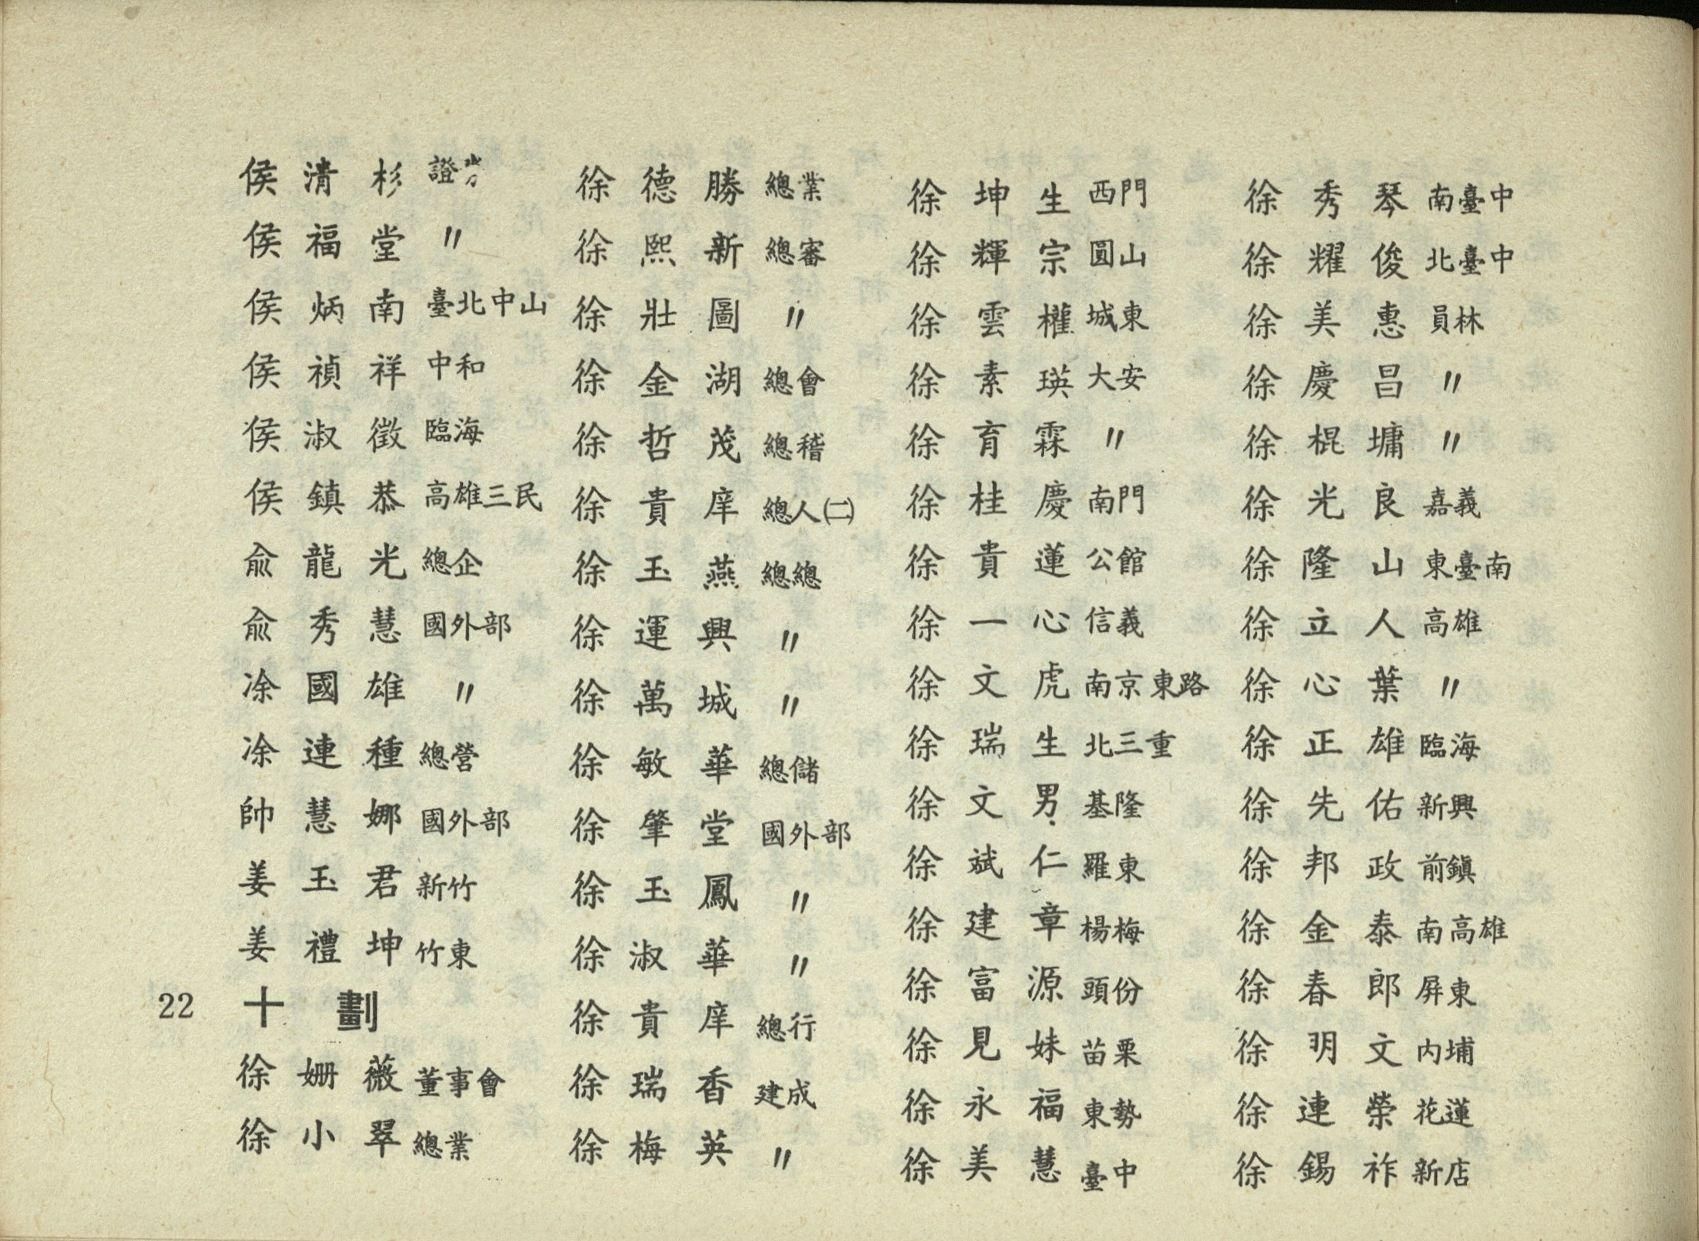 侯清杉 證
侯福堂 〃
侯炳南 臺北中山
侯禎祥 中和
侯淑徵 臨海
侯鎮恭 高雄三民
俞龍光 總企
俞秀慧 國外部
凃國雄 〃
凃連種 總營
帥慧娜 國外部
姜玉君 新竹
姜禮坤 竹東
十劃
徐姍薇 董事會
徐小翠 總業
徐德勝 總業
徐熙新 總審
徐壯圖 〃
徐金湖 總會
徐哲茂 總稽
徐貴庠 總人㈡
徐玉燕 總總
徐運興 〃
徐萬城 〃
徐敏華 總儲
徐肇堂 國外部
徐玉鳳 〃
徐淑華 〃
徐貴庠 總行
徐瑞香 建成
徐梅英 〃
徐坤生 西門
徐輝宗 圓山
徐雲權 城東
徐素瑛 大安
徐育霖 〃
徐桂慶 南門
徐貴蓮 公館
徐一心 信義
徐文虎 南京東路
徐瑞生 北三重
徐文男 基隆
徐斌仁 羅東
徐建章 楊梅
徐富源 頭份
徐見妹 苗栗
徐永福 東勢
徐美慧 臺中
徐秀琴 南臺中
徐耀俊 北臺中
徐美惠 員林
徐慶昌 〃
徐棍墉 〃
徐光良 嘉義
徐隆山 東臺南
徐立人 高雄
徐心葉 〃
徐正雄 臨海
徐先佑 新興
徐邦政 前鎮
徐金泰 南高雄
徐春郎 屏東
徐明文 內埔
徐連榮 花蓮
徐錫祚 新店
22